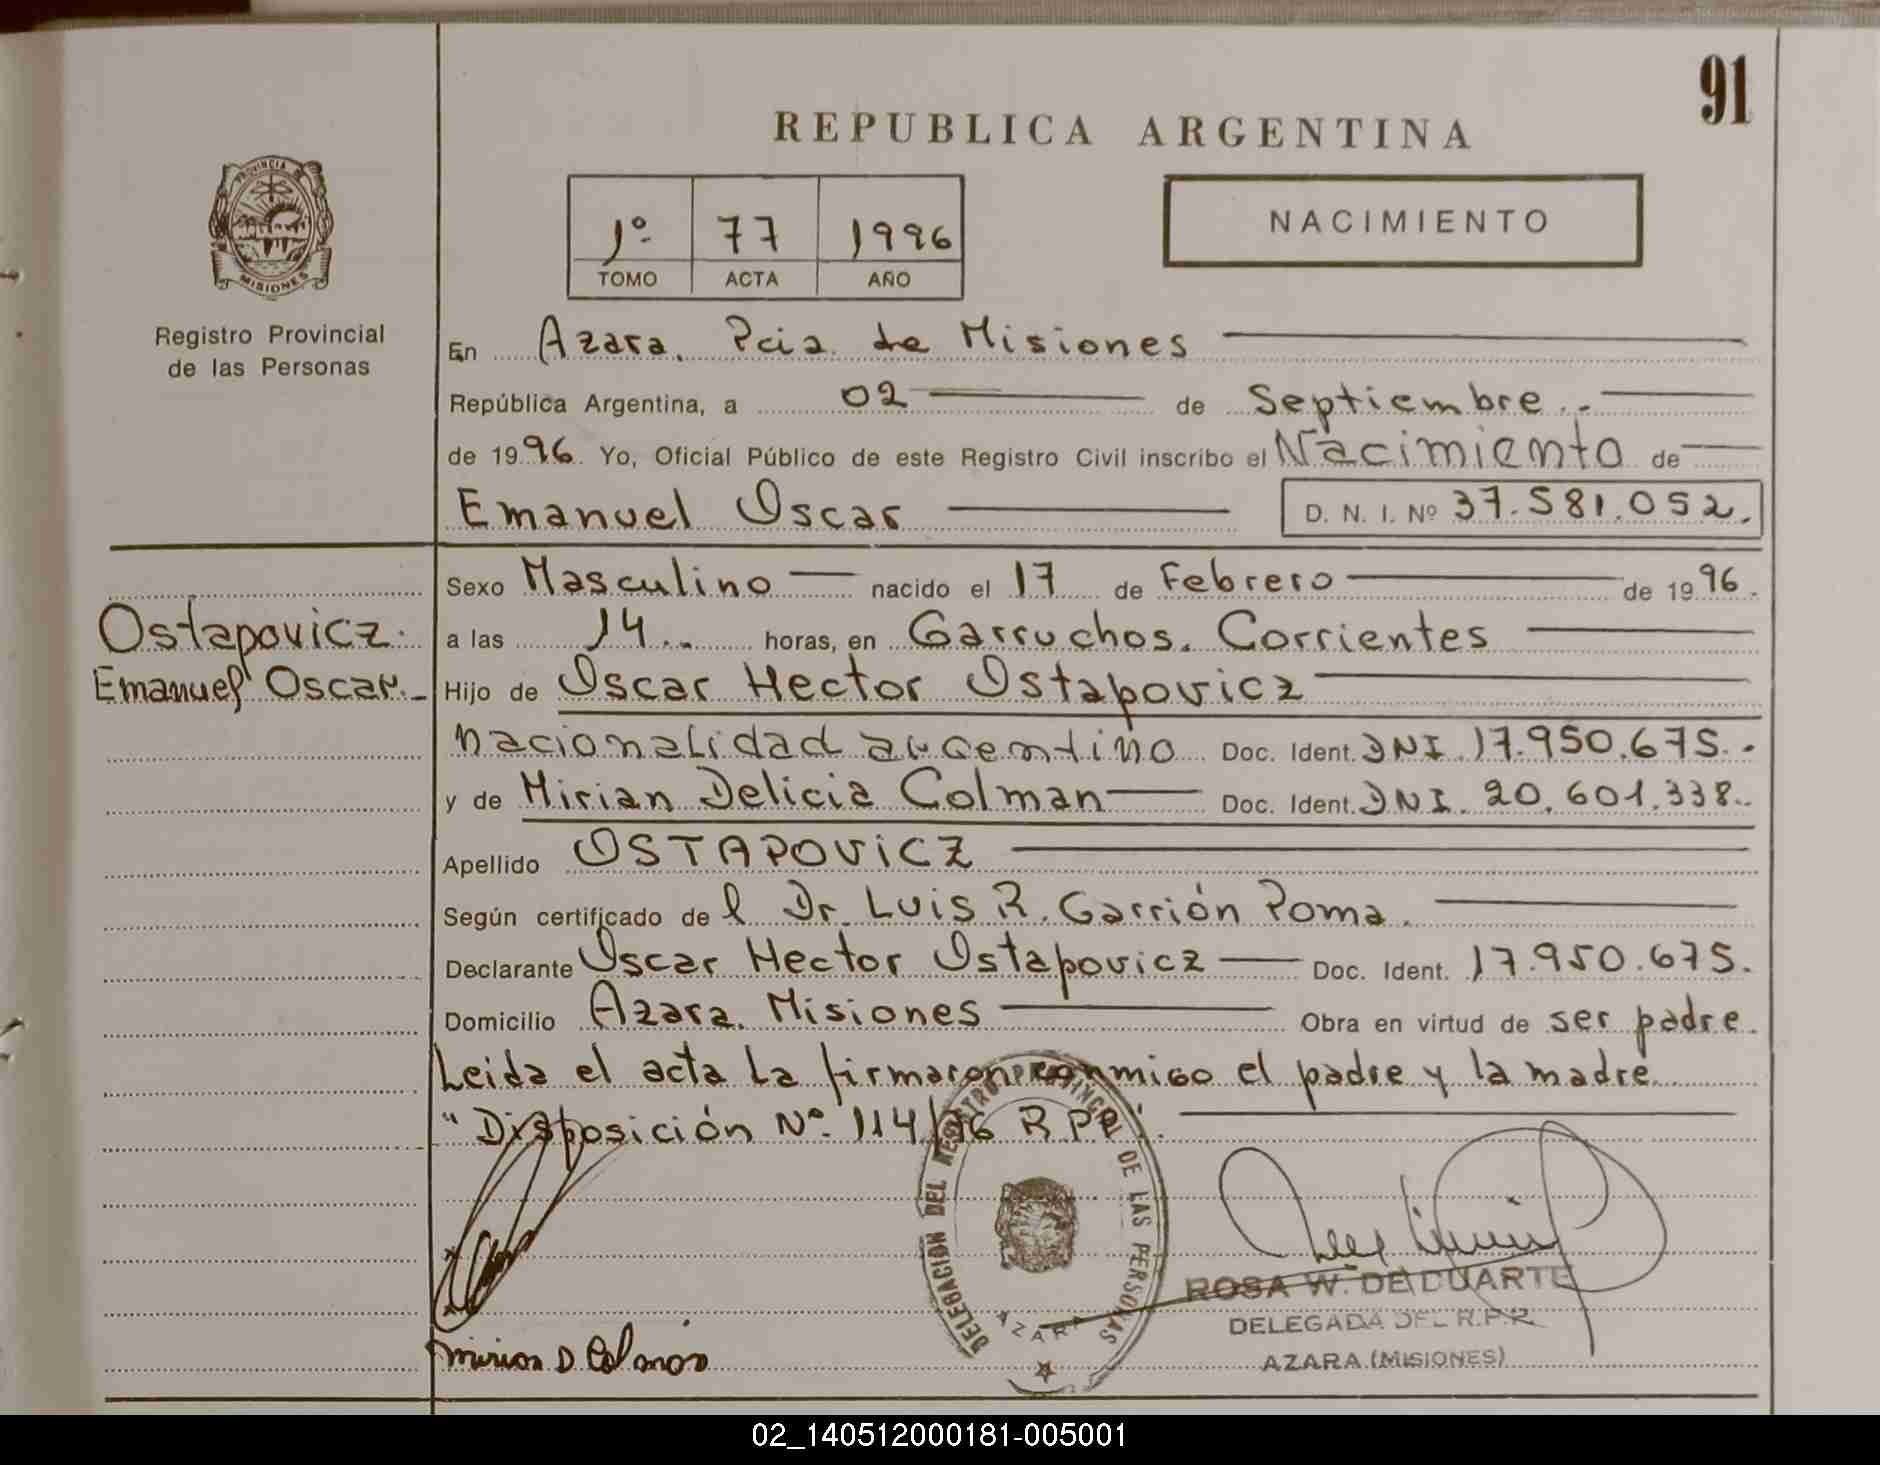 91
REPUBLICA ARGENTINA
PROVINCIA DE
MISIONES
Registro Provincial
de las Personas
1º 77 1996
TOMO ACTA AÑO
NACIMIENTO
En Azara. Pcia. de Misiones
República Argentina, a 02 de Septiembre.-
de 1996. Yo, Oficial Público de este Registro Civil inscribo el Nacimiento de
Emanuel Oscar D. N. I. Nº 37.581.052.
Ostapovicz.
Emanuel Oscar.-
Sexo Masculino nacido el 17 de Febrero de 1996.
a las 14.. horas, en Garruchos. Corrientes
Hijo de Oscar Hector Ostapovicz
nacionalidad argentino Doc. Ident. DNI 17.950.675.-
y de Mirian Delicia Colman Doc. Ident. DNI. 20.601.338.
Apellido OSTAPOVICZ
Según certificado de l Dr. Luis R. Garrión Poma.
Declarante Oscar Hector Ostapovicz Doc. Ident. 17.950.675.
Domicilio Azara. Misiones Obra en virtud de ser padre.
Leida el acta la firmaron conmigo el padre y la madre
"Disposición Nº 114/96 R P P".
DELEGACION DEL REGISTRO PROVINCIAL DE LAS PERSONAS
AZARA
Mirian D Colman
ROSA W. DE DUARTE
DELEGADA DEL R.P.P.
AZARA (MISIONES)
02_140512000181-005001